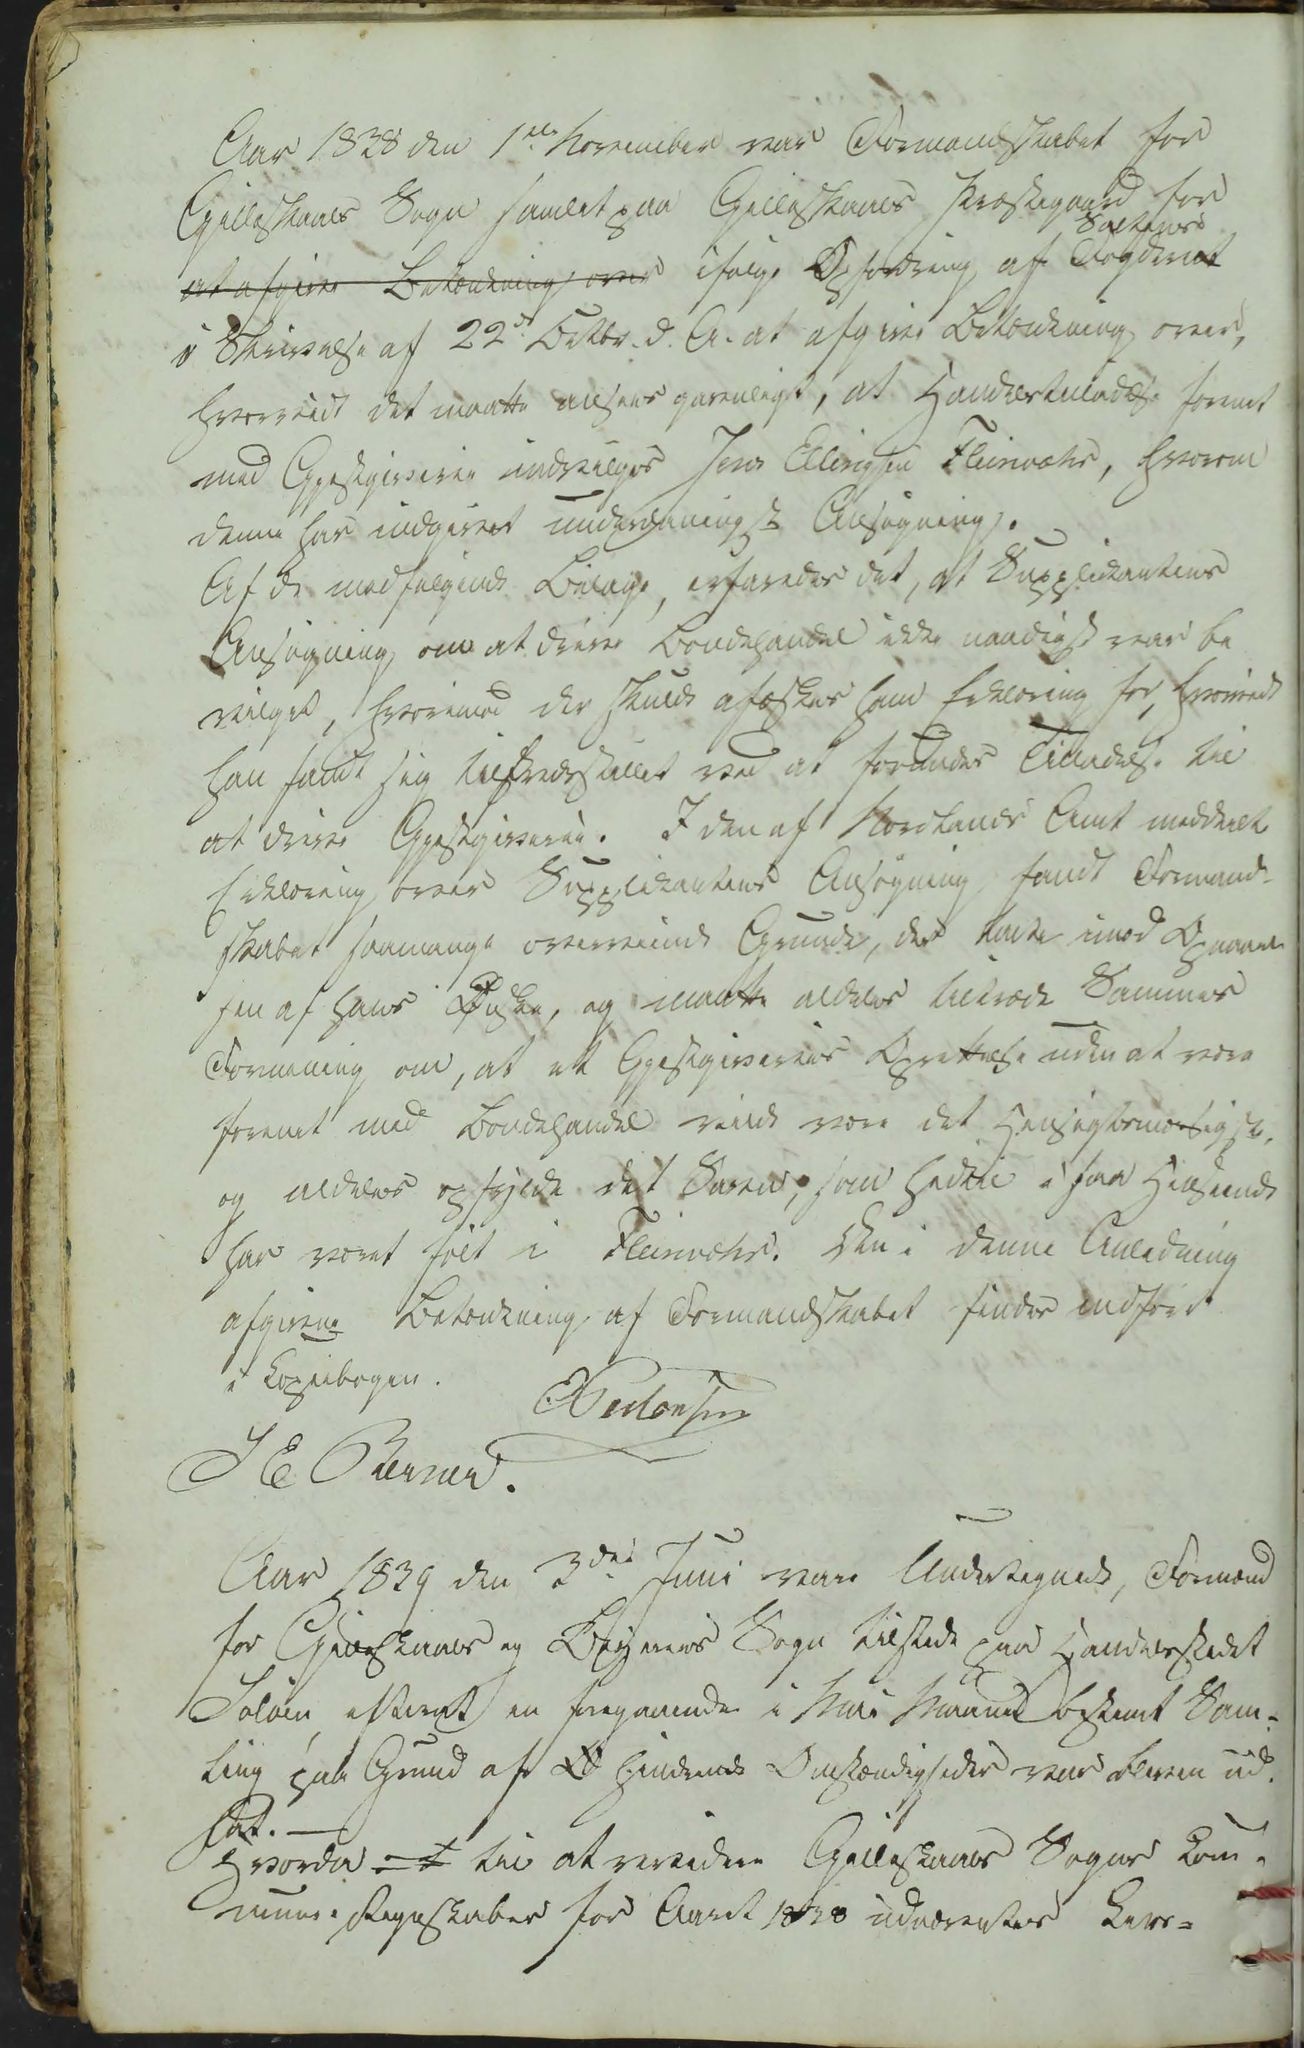 Aar 1838 den 1ste November var Formandskabet for
Gilleskaals Sogn samlet paa Gilleskaals Præstegaard for
Saltens
at afgive Betænkning over ifølge Opfordring af Fogderiet
i Skrivelse af 22de Octbr. d. A. at afgive Betænkning over,
hvorvidt det maatte ansees gavnligt, at Handelstilladelse forenet
med Gjestgiverie indvilges Jens Ellingsen Fleinvær, hvorom
denne har indgivet underdanigst Ansøgning.
Af de medfølgende Bilage, erfaredes det, at Supplikantens
Ansøgning om at drive Bondehandel ikke naadigst var be
vilget, hvorimod der skulde afæskes ham Erklæring for, hvorvidt
han fandt sig tilfredsstillet ved at forundes Tilladelse til
at drive Gjestgiverie. I den af Nordlands Amt meddeelte
Erklæring over Supplikantens Ansøgning fandt Formand-
skabet saamange overveiende Grunde, der talte imod Opnaael
sen af hans Ønske, og maatte aldeles tiltræde Sammes
Formening om, at et Gjestgiveries Oprettelse uden at være
forenet med Bondehandel vilde være det Hensigtsmæsigste,
og aldeles opfylde det Savn, som hidtil i saa Henseende
har været følt i Fleinvær. Den i denne Anledning
afgivne Betænkning af Formandskabet findes indført
i Copiebogen.
J E
Aar 1839 den 3die Juni vare Undertegnede, Formænd
for Gilleskaals og Beyerens Sogn tilstede paa Handelsstedet
Søløen, efterat en foregaaende i Mai Maaned bestemt Sam-
ling paa Grund af hindrende Omstændigheder var bleven ud
sat. —
Hvorda til at revidere Gilleskaals Sogns Com-
mune-Regnskaber for Aaret 1838 udnævntes